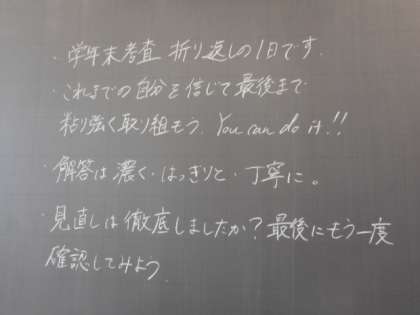 ・学年末考査 折り返しの1日です.
・これまでの自分を信じて最後まで
粘り強く取り組もう. You can do it!!
・解答は濃く・はっきりと・丁寧に。
・見直しは徹底しましたか?最後にもう一度
確認してみよう.